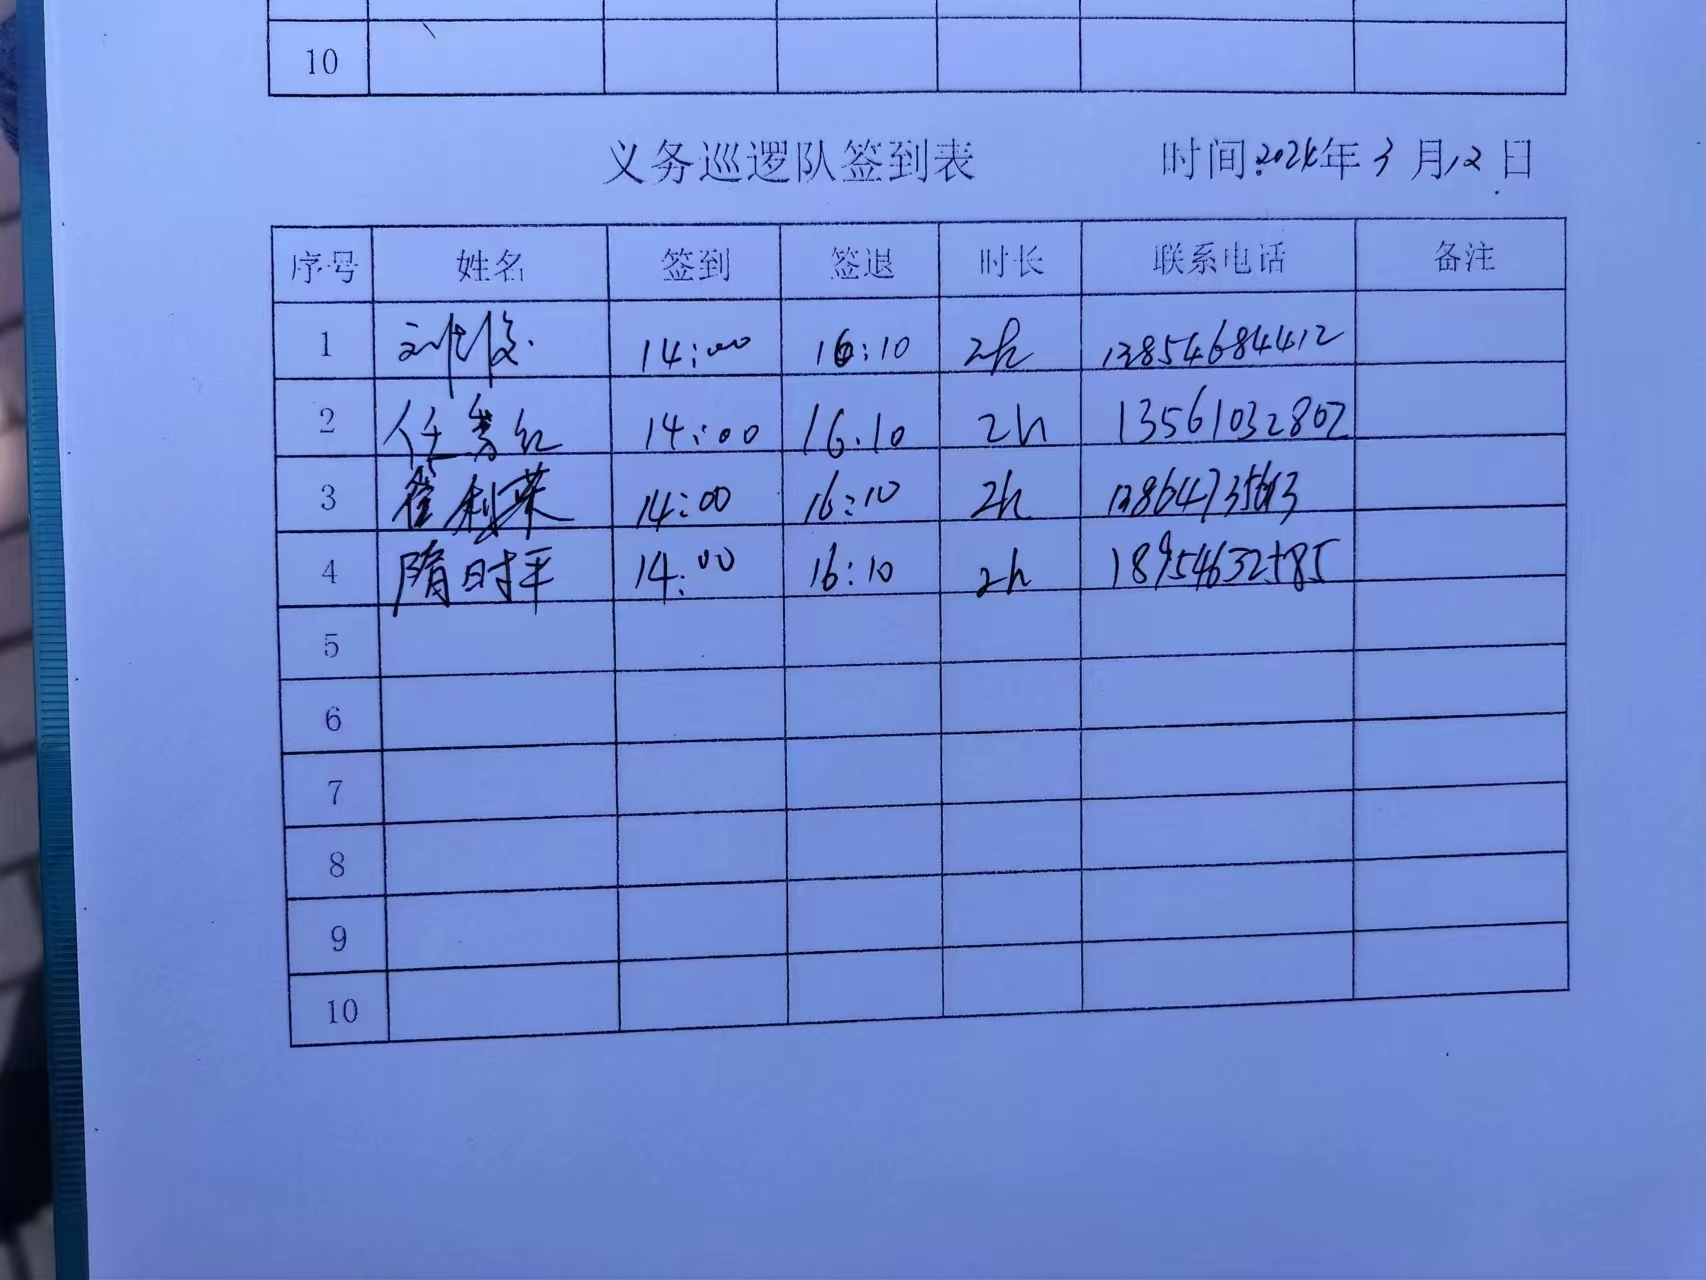 10
义务巡逻队签到表 时间:2024年3月12日
序号 姓名 签到 签退 时长 联系电话 备注
1 14:00 16:10 2h 13854684412
2 任秀红 14:00 16:10 2h 13561032802
3 崔利荣 14:00 16:10 2h
4 隋时平 14:00 16:10 2h 18954632585
5
6
7
8
9
10